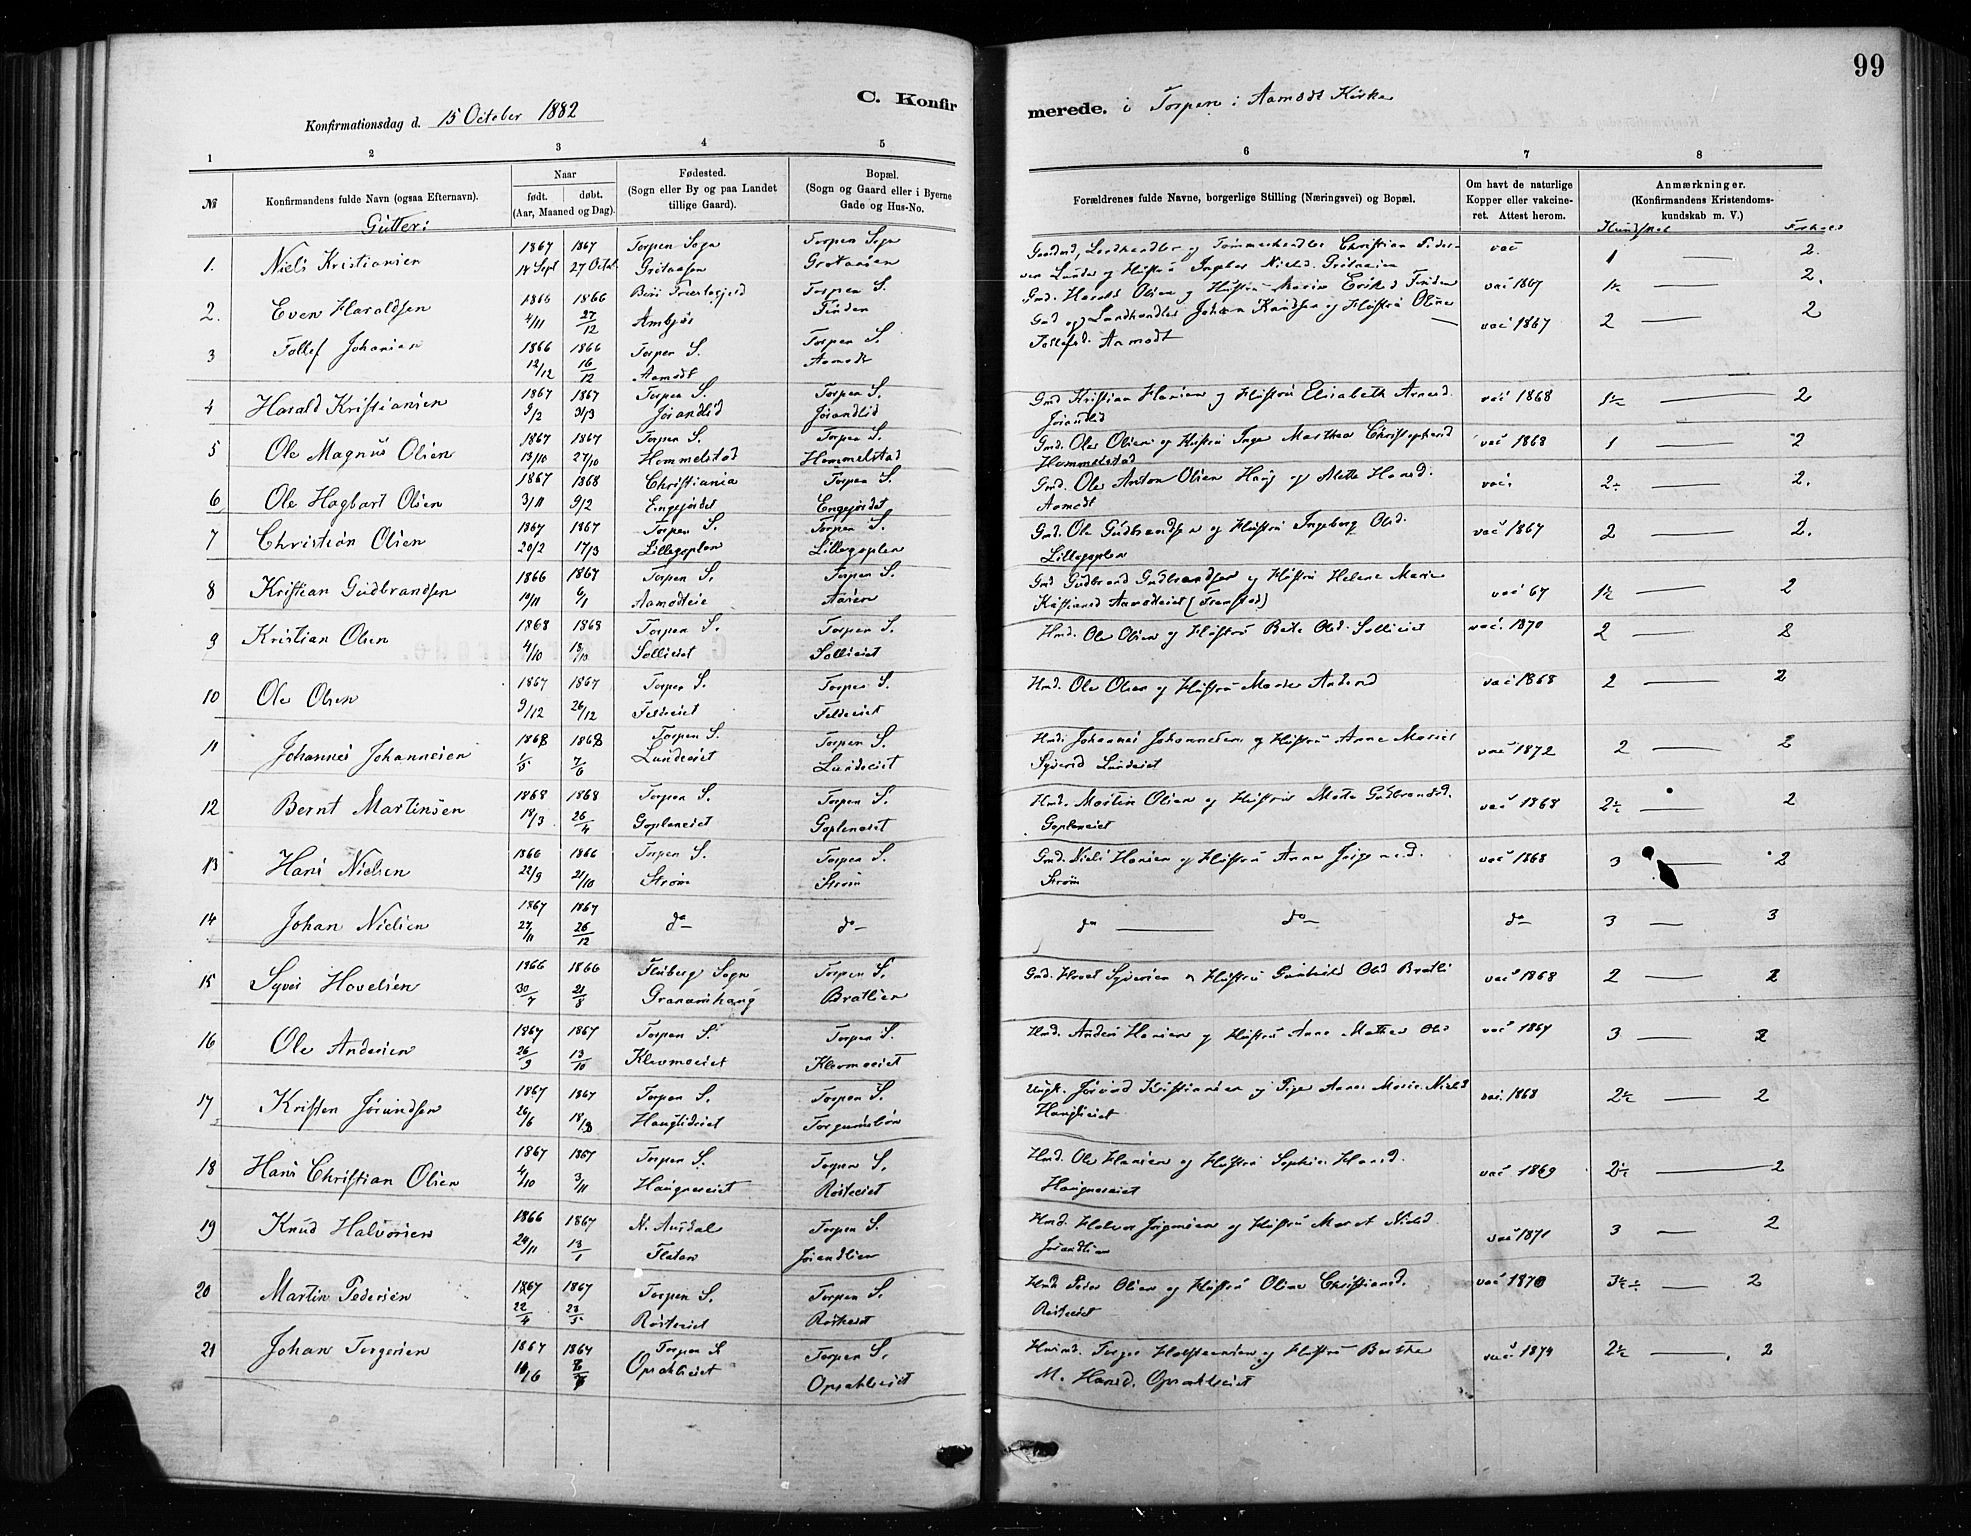 99
C. Konfir merede. i Torpen i Aamodt Kirke
Konfirmationsdag d. 15 October 1882
1 2 3 4 5 6 7 8
№ Konfirmandens fulde Navn (ogsaa Efternavn). Naar født. døbt. (Aar, Maaned og Dag). Fødested. (Sogn eller By og paa Landet tillige Gaard). Bopæl. (Sogn og Gaard eller i Byerne Gade og Hus-No. Forældrenes fulde Navne, borgerlige Stilling (Næringsvei) og Bopæl. Om havt de naturlige Kopper eller vakcineret. Attest herom. Anmærkninger. (Konfirmandens Kristendomskundskab m. V.)
Gutter: Kundskab Forhold
1. Niels Kristiansen 1867 14 Sept 1867 27 Octob. Torpen Sogn Torpen Sogn vac 1 — 2.
2. Even Haraldsen 1866 4/11 1866 27/12 Torpen S. Finden Gmd. Harald Olsen og Hustru Marie vac 1867 1½ — 2.
3 Tollef Johansen 1866 12/12 1866 16/12 Torpen S. Aamodt Torpen S. Aamodt Gmd og Landhandler Johan Knudsen og Hustru Oline Tollefsd. Aamodt vac 1867 2 — 2
4 Harald Kristiansen 1867 9/2 1867 31/3 Torpen S. Jørandlid Torpen S. Jørandlid Gmd Kristian Hansen og Hustru Elisabeth Arnesd. Jørandlid vac 1868 1½ — 2
5 Ole Magnus Olsen 1867 13/10 1867 27/10 Torpen S. Hommelstad Torpen S. Hommelstad Gmd. Ole Olsen og Hustru Inge Marthea Christophersd Hommelstad vac 1868 1 — 2
6 Ole Hagbart Olsen 1867 3/11 1868 9/2 Christiania Engejordet Torpen S. Engejordet Gmd. Ole Anton Olsen Haug og Alette Hansd. Aamodt vac. 2÷ — 2.
7 Christian Olsen 1867 20/2 1867 17/3 Torpen S. Lillegoplen Torpen S. Lillegoplen Gmd. Ole Gudbrandsen og Hustru Ingeborg Olsd. Lillegoplen vac 1867 2 — 2.
8 Kristian Gudbrandsen 1866 10/11 1867 6/1 Torpen S. Aamodteie Torpen S. Gmd Gudbrand Gudbrandsen og Hustru Helene Marie Aamodteiet vac 67 1½ — 2
9 Kristian Olsen 1868 4/10 1868 18/10 Torpen S. Sollieiet Torpen S. Sollieiet Hmd. Ole Olsen og Hustru Olsd. Sollieiet vac. 1870 2 — 2
10 Ole Olsen 1867 9/12 1867 26/12 Torpen S. Feldeiet Torpen S. Feldeiet Hmd. Ole Olsen og Hustru Marie Andersd vac 1868 2 — 2
11 Johannes Johannesen 1868 1/5 1868 7/6 Torpen S. Lundeeiet Torpen S. Lundeeiet Hmd. Johannes Johannesen og Hustru Anne Marie Syversd Lundeiet vac 1872 2 — 2
12 Bernt Martinsen 1868 18/3 1868 26/4 Torpen S. Gopleneiet Torpen S. Gopleneiet Hmd. Martin Olsen og Hustru Gudbrandsd. Gopleneiet vac 1868 2½ — 2
13 Hans Nielsen 1866 22/9 1866 21/10 Torpen S. Strøm Torpen S. Strøm Gmd. Niels Hansen og Hustru Anne Strøm vac 1868 3 — 2
14 Johan Nielsen 1867 27/11 1867 26/12 do— do— do — do— do— 3 — 3
15 Syver Hovelsen 1866 30/7 1866 21/8 Fluberg Sogn Torpen S. Bratlien Gmd. Hovel Syversen & Hustru Olsd Bratli vac 1868 2 — 2
16 Ole Andersen 1867 26/9 1867 13/10 Torpen S. Klevmoeiet Torpen S. Klevmoeiet Hmd. Anders Hansen og Hustru Anne Mathea Olsd vac 1867 3 — 2
17 Kristen Jørundsen 1867 26/6 1867 18/8 Torpen S. Hauglideiet Torpen S. Ungk. Jørund Kristiansen og Pige Anne Marie Nielsd Hauglieiet vac. 1868 2½ — 2
18 Hans Christian Olsen 1867 4/10 1867 3/11 Torpen S. Haugnereiet Torpen S. Røsteeiet Hmd. Ole Hansen og Hustru Sophie Hansd. Haugnereiet vac 1869 2½ — 2
19 Knud Halvorsen 1866 24/11 1867 13/1 N. Aurdal Flaten Torpen S. Jørandlien Hmd. Halvor Jørgensen og Hustru Marit Nielsd. Jørandlien vac 1871 3 — 2
20 Martin Pedersen 1867 22/4 1867 23/5 Torpen S. Røsteeiet Torpen S. Røsteeiet Hmd. Peder Olsen og Hustru Oline Christiansd. Røsteeiet vac 1870 3½÷ — 2
21 Johan Torgersen 1867 10/6 1867 Torpen S. Opsahleiet Torpen S. Opsahleiet Torger Holstensen og Hustru Berthe M. Hansd. Opsahleiet vac. 1874 2½ — 2